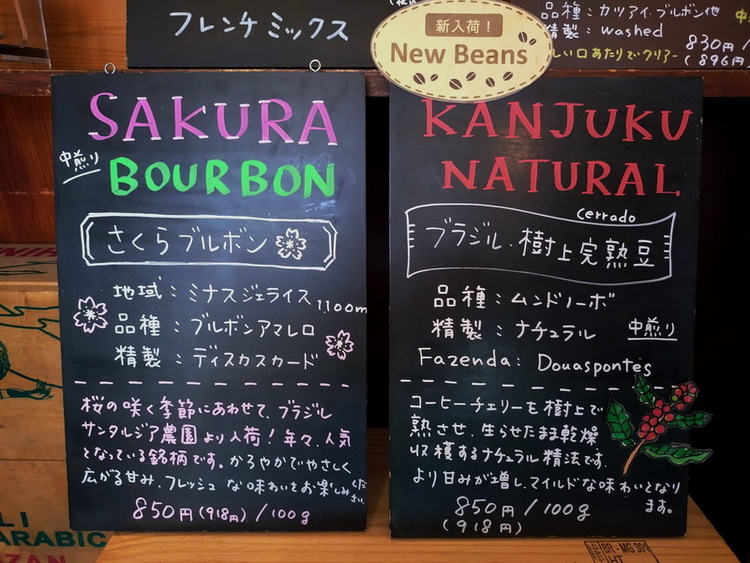 フレンチミックス
品種：カツアイ.ブルボン他
精製：washed
830円/
しい口あたりでクリアー
(896円)
新入荷！
New Beans
SAKURA
中煎り
BOURBON
さくらブルボン
地域：ミナスジェライス
1100m
品種：ブルボンアマレロ
精製：ディスカスカード
桜の咲く季節にあわせて、ブラジル
サンタルジア農園より入荷！年々、人気
となっている銘柄です。かろやかでやさしく
広がる甘み、フレッシュな味わいをお楽しみください。
850円(918円)/100g
KANJUKU
NATURAL
cerrado
ブラジル.樹上完熟豆
品種：ムンドノーボ
精製：ナチュラル
中煎り
Fazenda：Douaspontes
コーヒーチェリーを樹上で
熟させ、生らせたまま乾燥
収穫するナチュラル精法です.
より甘みが増し、マイルドな味わいとなり
ます。
850円/100g
(918円)
BR-MG301
LI
ARABIC
ZAN